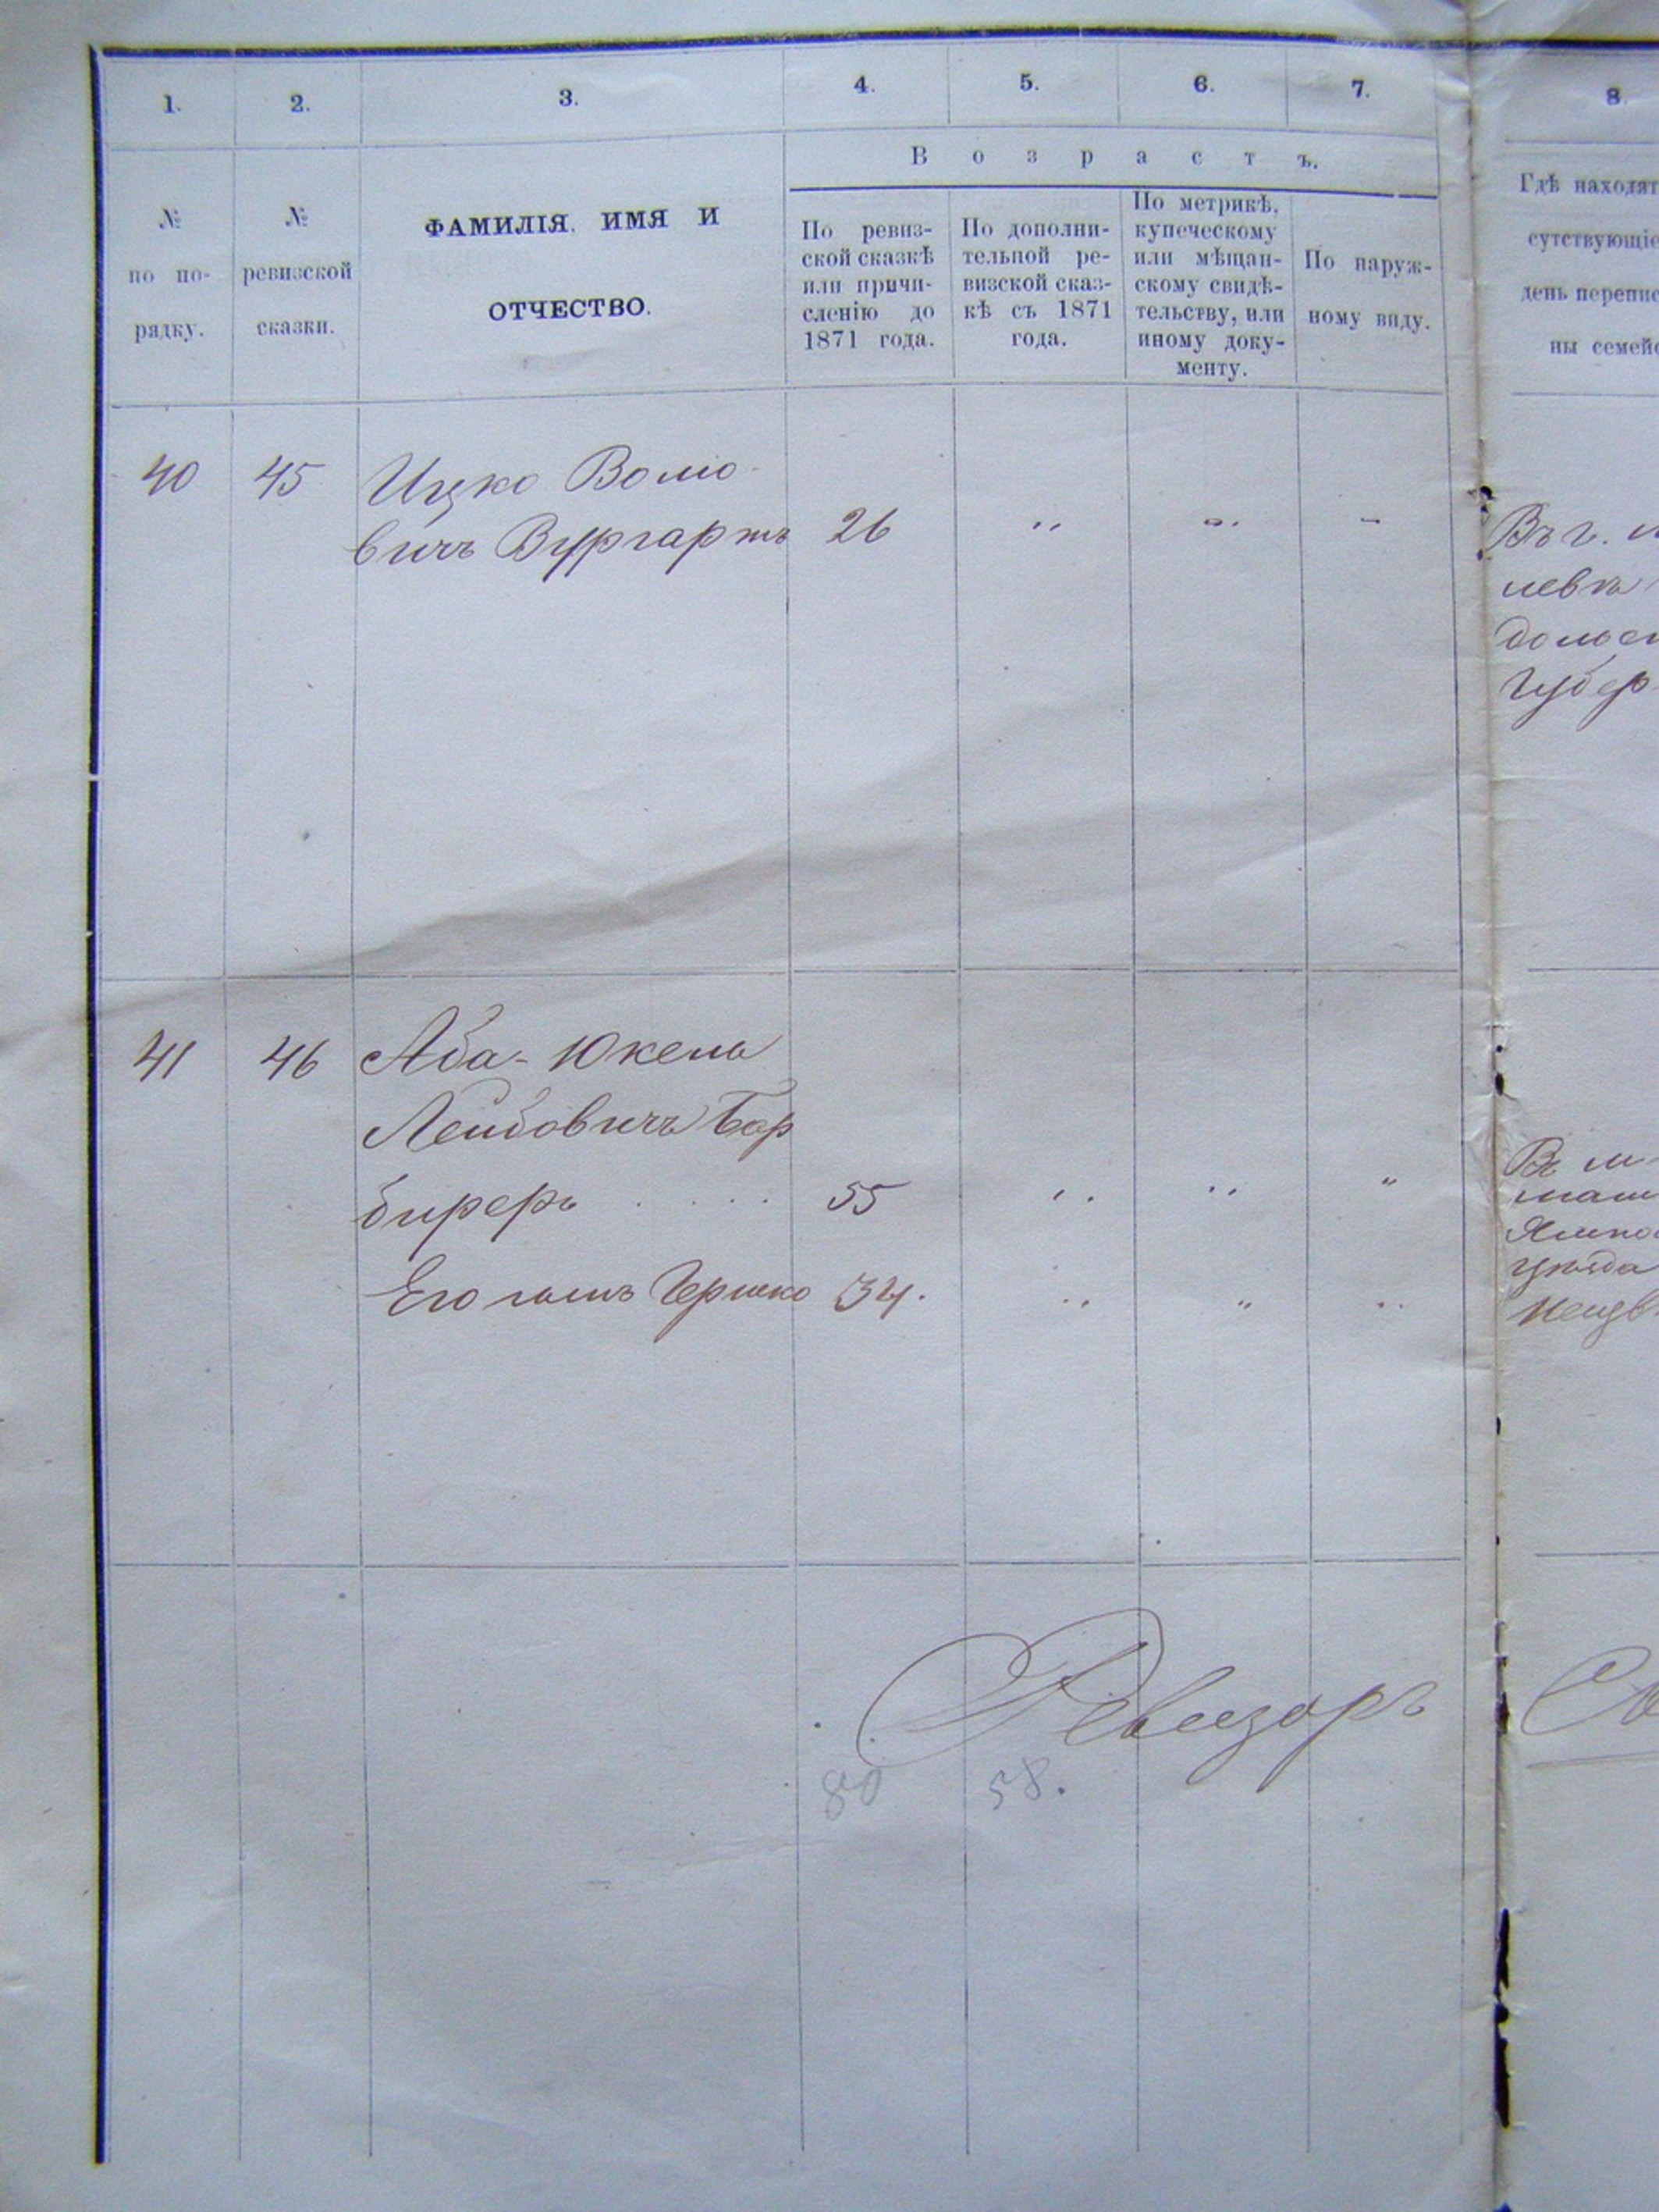 1. 2. 3. 4. 5. 6. 7. 8.
Возрастъ.
№ по по-
рядку.
№
ревизской
сказки.
ФАМИЛІЯ, ИМЯ И
ОТЧЕСТВО.
По ревиз-
ской сказкѣ
или причи-
сленію до
1871 года.
По дополни-
тельной ре-
визской сказ-
кѣ съ 1871
года.
По метрикѣ,
купеческому
или мѣщан-
скому свидѣ-
тельству, или
иному доку-
менту.
По наруж-
ному виду.
Гдѣ находят
сутствующіе
день перепис
ны семейс
40 45 Ицко Волю-
вичъ Вургартъ 26 „ „ „
Въ г.
левѣ
дольск
Губер
41 46 Аба-Юкель
Лейбовичъ Бар
биреръ . . . . 55 „ „ „
Его сынъ Гершко 34. „ „ „
Въ м
Ямпо
уѣзда
Ревизоръ
80 58.